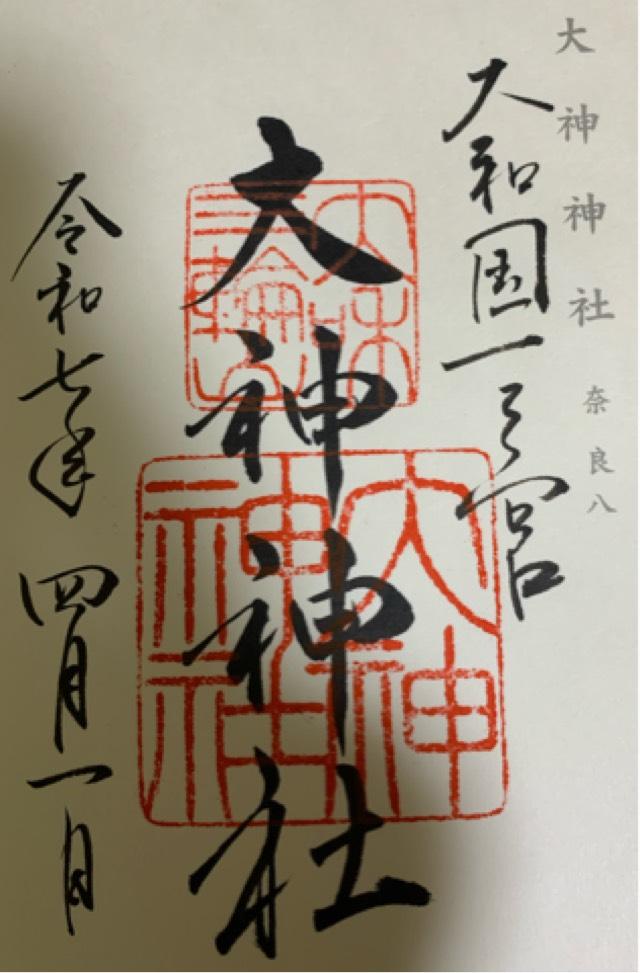 大神神社 奈良八
大和国一之宮
大神神社
令和七年 四月一日
三輪山
大神
神社